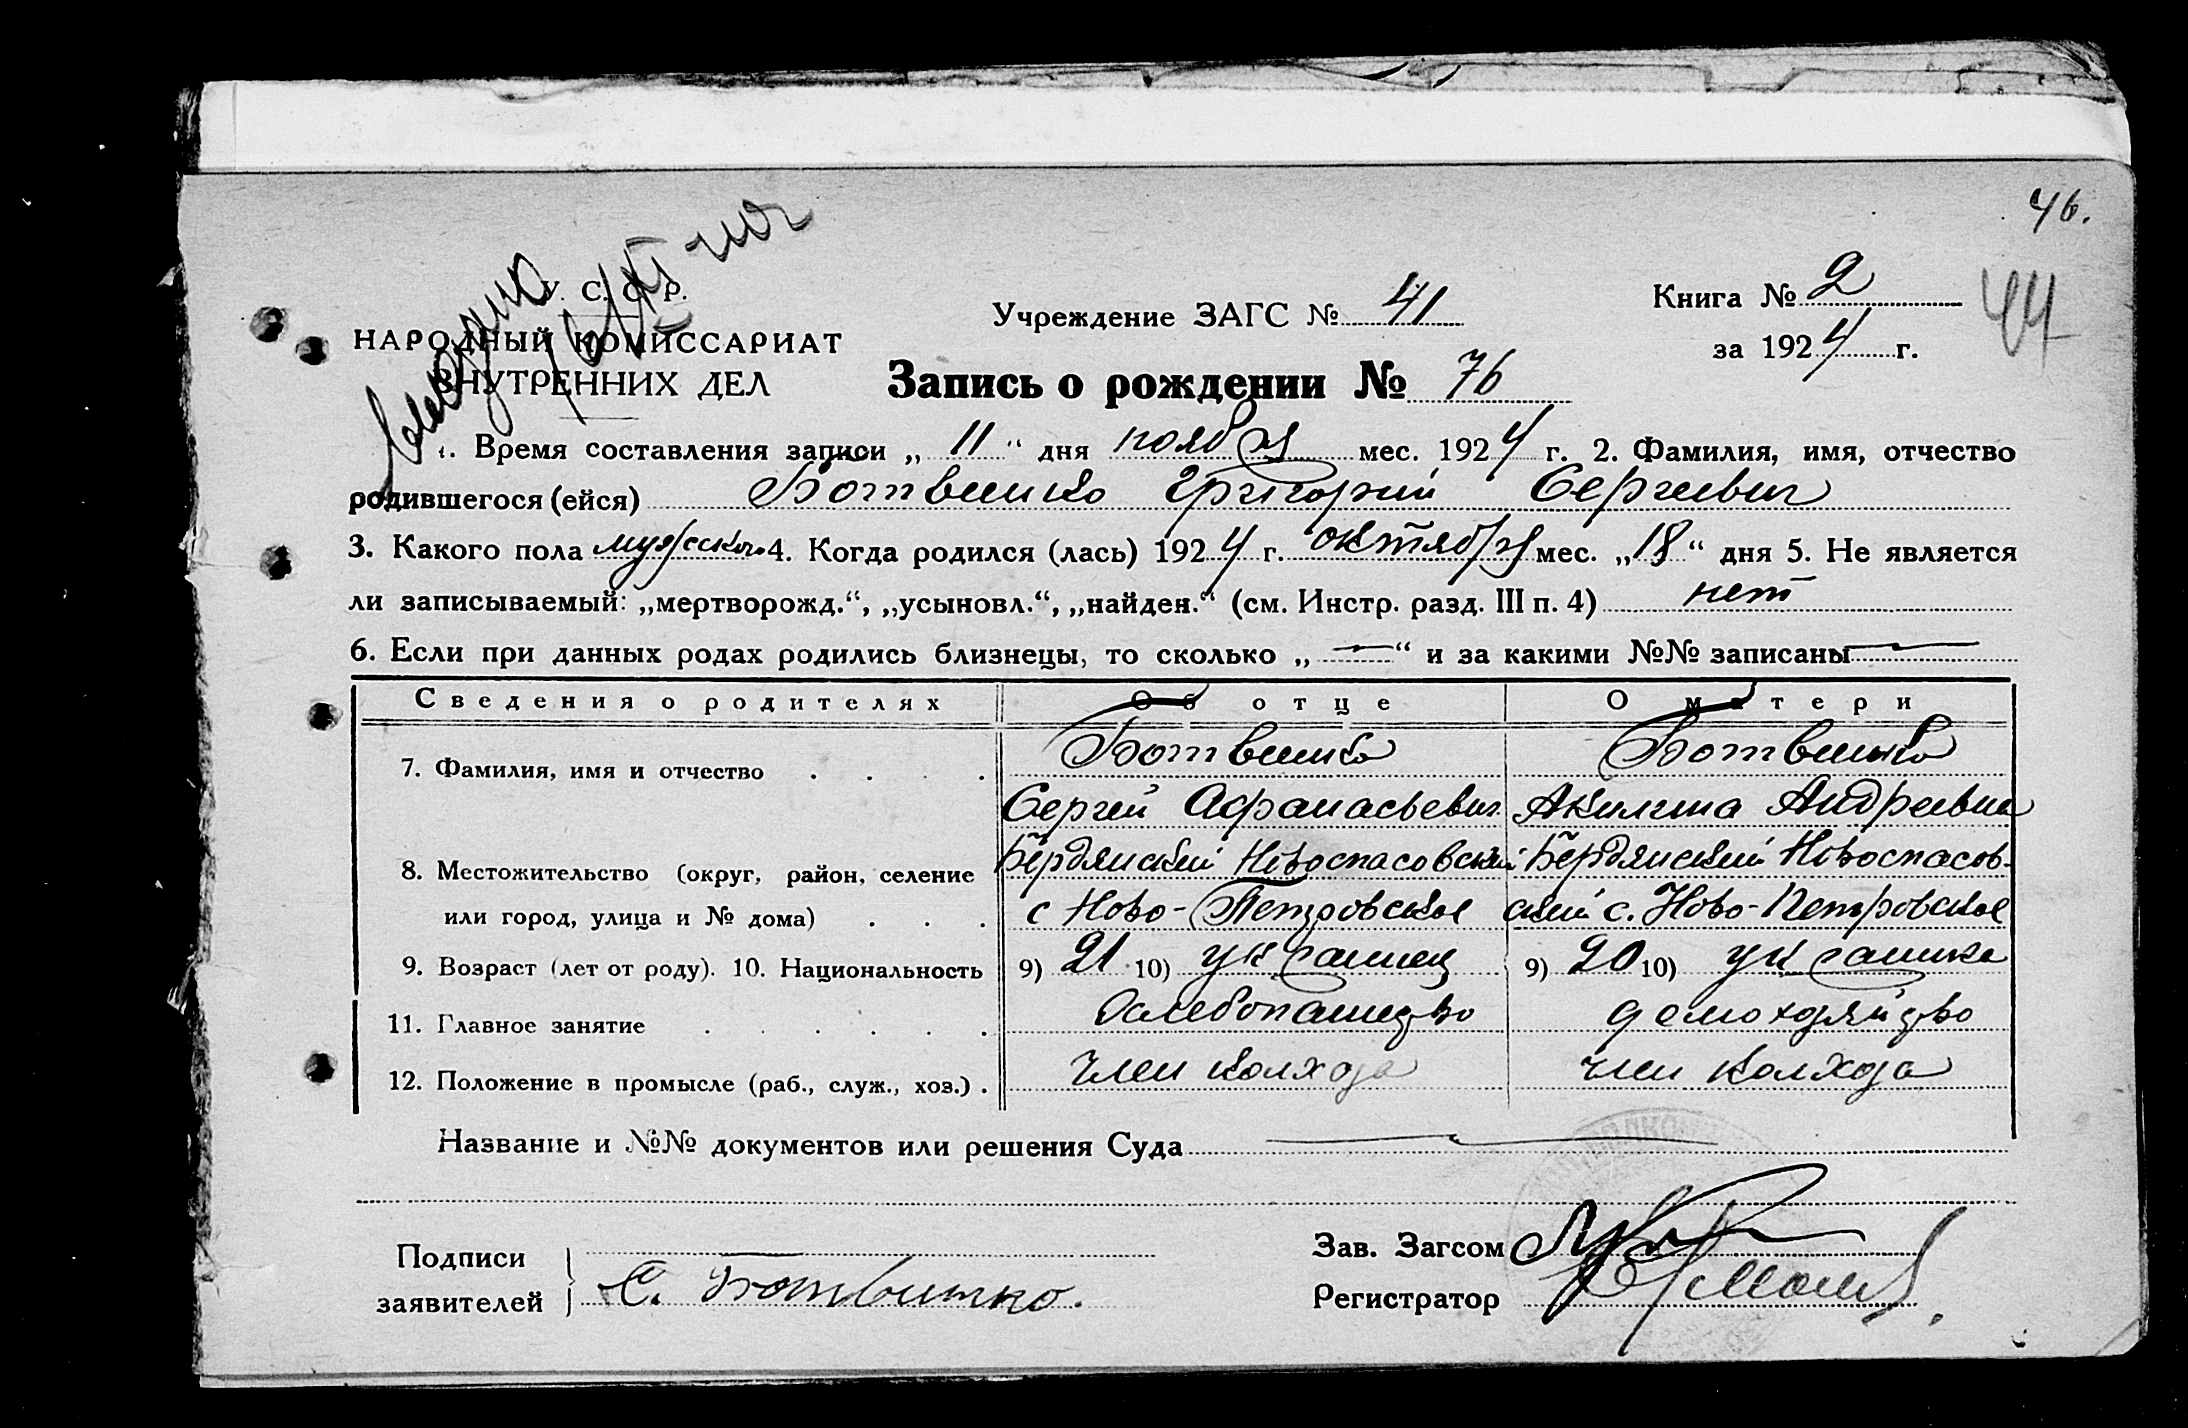 46.
44
У. С. С. Р.
НАРОДНЫЙ КОМИССАРИАТ
ВНУТРЕННИХ ДЕЛ
Учреждение ЗАГС № 41
Книга № 2
за 1924 г.
Запись о рождении № 76
1. Время составления записи „ 11 “ дня ноября мес. 1924 г. 2. Фамилия, имя, отчество
родившегося (ейся) Ботвинко Григорий Сергеевич
3. Какого пола мужского 4. Когда родился (лась) 1924 г. октября мес. „18“ дня 5. Не является
ли записываемый: „мертворожд.“, „усыновл.“, „найден.“ (см. Инстр. разд. III п. 4) нет
6. Если при данных родах родились близнецы, то сколько „ — “ и за какими №№ записаны —
Сведения о родителях Об отце О матери
7. Фамилия, имя и отчество . . . . Ботвинко Ботвинко
Сергей Афанасьевич Акилина Андреевна
8. Местожительство (округ, район, селение Бердянский Новоспасовский Бердянский Новоспасов-
или город, улица и № дома) . . . с Ново-Петровское ский с. Ново-Петровское
9. Возраст (лет от роду). 10. Национальность 9) 21 10) украинец 9) 20 10) украинка
11. Главное занятие . . . . . . Хлебопашество домохозяйство
12. Положение в промысле (раб., служ., хоз.) . член колхоза член колхоза
Название и №№ документов или решения Суда —
Подписи
заявителей } С. Ботвинко.
Зав. Загсом
Регистратор